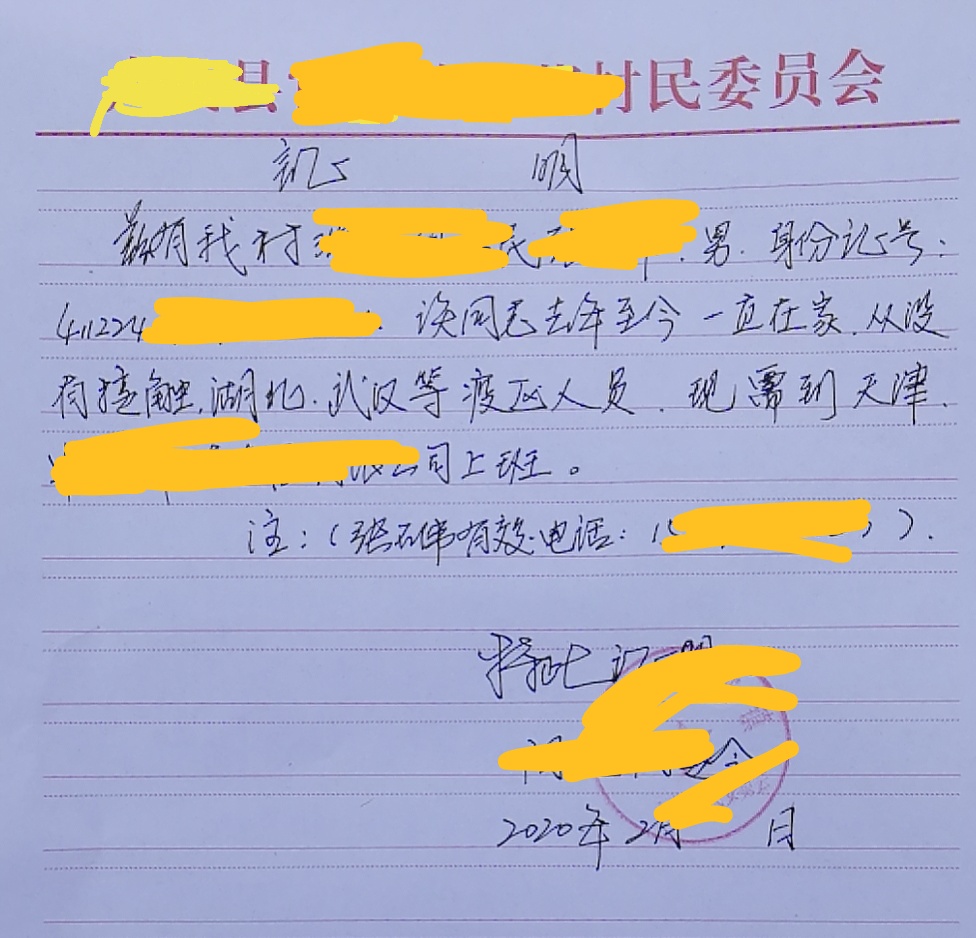 县 村民委员会
证 明
兹有我村 男. 身份证号:
411224 该同志去年至今一直在家. 从没
有接触. 湖北. 武汉等疫区人员. 现需到天津.
公司上班。
注:( 有效电话: 1 ).
特此证明
2020年2月 日